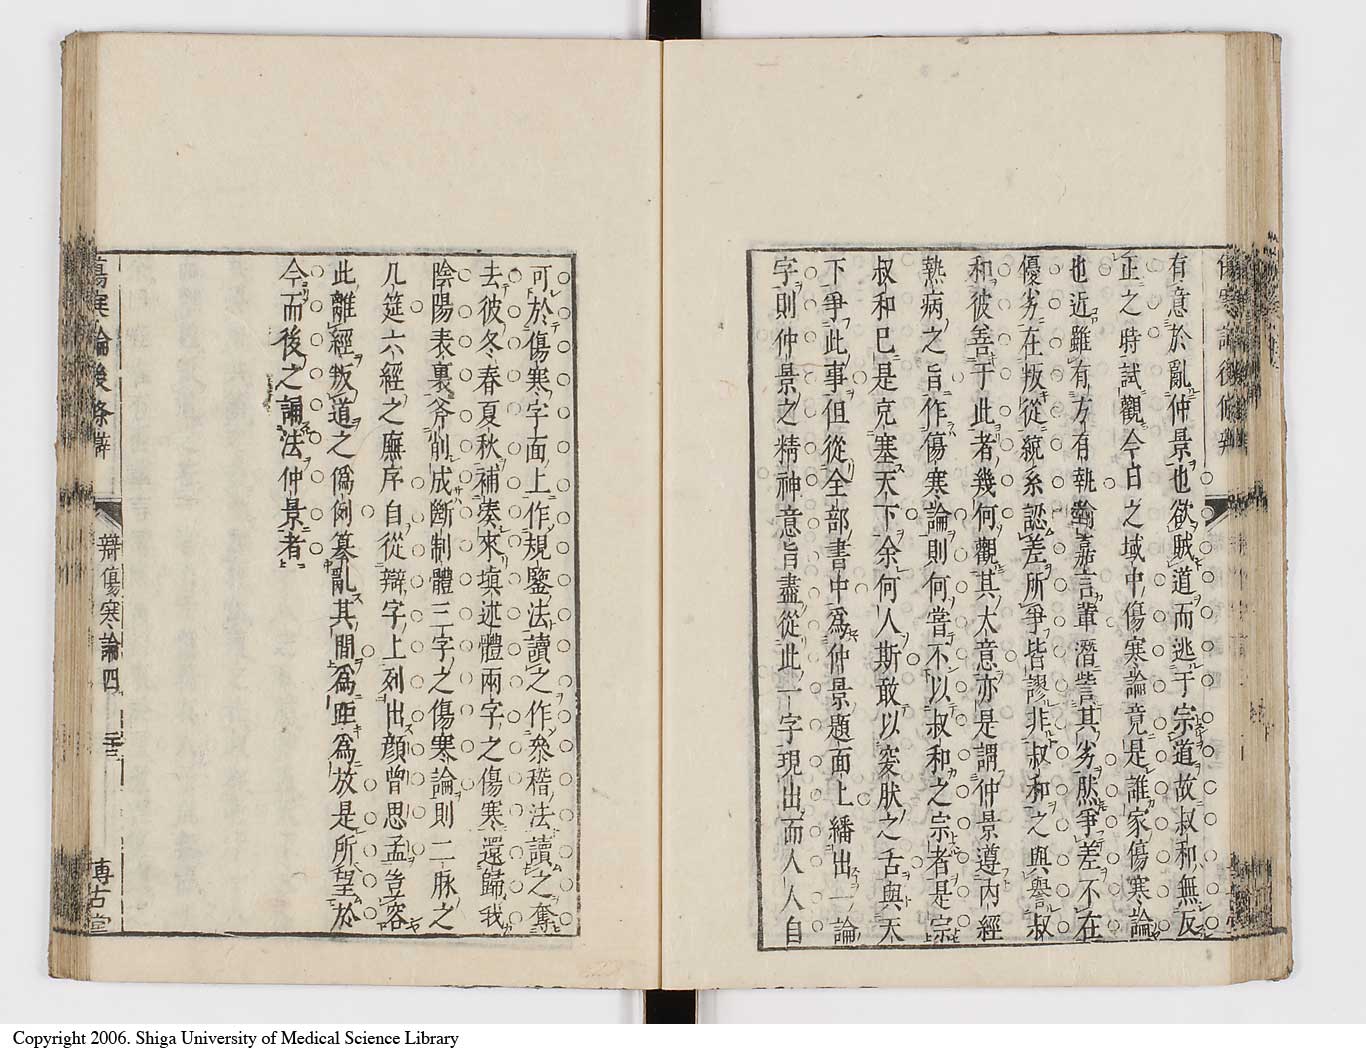 有意於亂仲景也欲賊道而逃于宗道故叔和無反
正之時試觀今日之域中傷寒論竟是誰家傷寒論
也近雖有方有執喻嘉言輩潛訾其劣然爭差不在
優劣在叛從統系認差所爭皆謬非叔和之與譽叔
和彼善于此者幾何觀其大意亦是謂仲景遵内經
熱病之旨作傷寒論則何嘗不以叔和之宗者是宗
叔和已是克塞天下余何人斯敢以變肰之舌與天
下爭此事但從全部書中爲仲景題面上繙出一論
字則仲景之精神意旨盡從此一字現出而人人自
可於傷寒字面上作規鑒法讀之作叅稽法讀之奪
去彼冬春夏秋補湊來塡述體兩字之傷寒還歸我
陰陽表裏斧削成斷制體三字之傷寒論則二脉之
几筵六經之廡序自從辯字上列出顔曾思孟豈容
此離經叛道之僞例纂亂其間爲距爲放是所望於
今而後之誦法仲景者
傷寒論後條辯
辯傷寒論四
博古堂
Copyright 2006. Shiga University of Medical Science Library